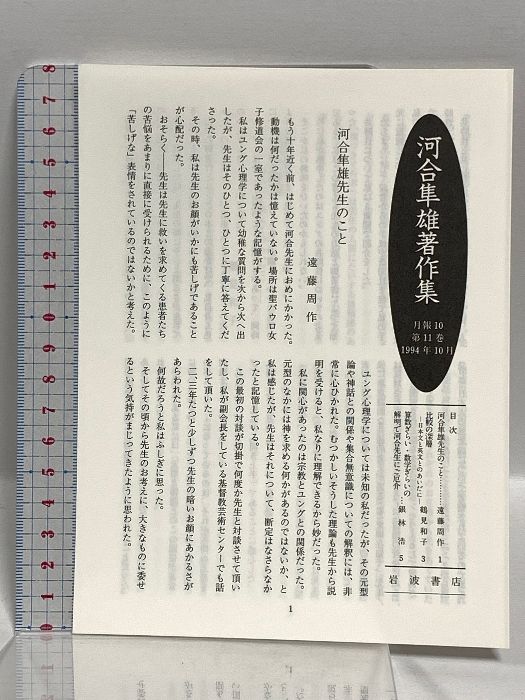 河合隼雄著作集
月報10
第11巻
1994年10月
目次
河合隼雄先生のこと………遠藤周作 1
比較の深層
―日本文と英文とのあいだに―鶴見和子 3
算数ぎらい・数学ぎらいの…
解明で河合先生にご追介…銀林浩 5
岩波書店
河合隼雄先生のこと
遠藤周作
もう十年近く前、はじめて河合先生におめにかかった。
動機は何だったかは憶えていない。場所は聖パウロ女
子修道会の一室であったような記憶がする。
私はユング心理学について幼稚な質問を次から次へ出
したが、先生はそのひとつ、ひとつに丁寧に答えてくだ
さった。
その時、私は先生のお顔がいかにも苦しげであること
が心配だった。
おそらく――先生は先生に救いを求めてくる患者たち
の苦悩をあまりに直接に受けられるために、このように
「苦しげな」表情をされているのではないかと考えた。
ユング心理学については未知の私だったが、その元型
論や神話との関係や集合無意識についての解釈には、非
常に心ひかれた。むつかしいそうした理論も先生から説
明を受けると、私なりに理解できるから妙だった。
私に関心があったのは宗教とユングとの関係だった。
元型のなかには神を求める何かがあるのではないか、と
私は感じたが、先生はそれについて、断定はなさらなか
ったと記憶している。
この最初の対談が切掛で何度か先生と対談させて頂い
たし、私が副会長をしている基督教芸術センターでも話
をして頂いた。
二、三年たつと少しずつ先生の暗いお顔にあかるさが
あらわれた。
何故だろうと私はふしぎに思った。
そしてその頃から先生のお考えに、大きなものに委せ
るという気持がまじってきたように思われた。
1
8
7
6
5
4
3
2
1
0
1
2
3
4
5
6
7
8
9
0
1
2